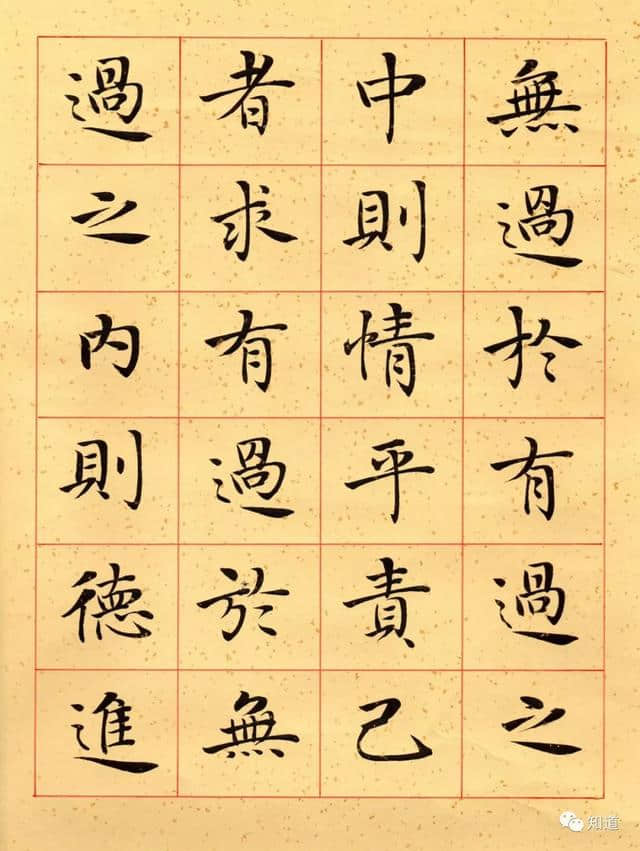 無過於有過之
中則情平責己
者求有過於無
過之內則德進
知道